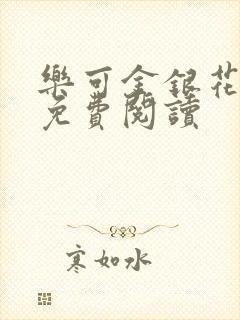 樂可金銀花
免費閱讀
寒如水